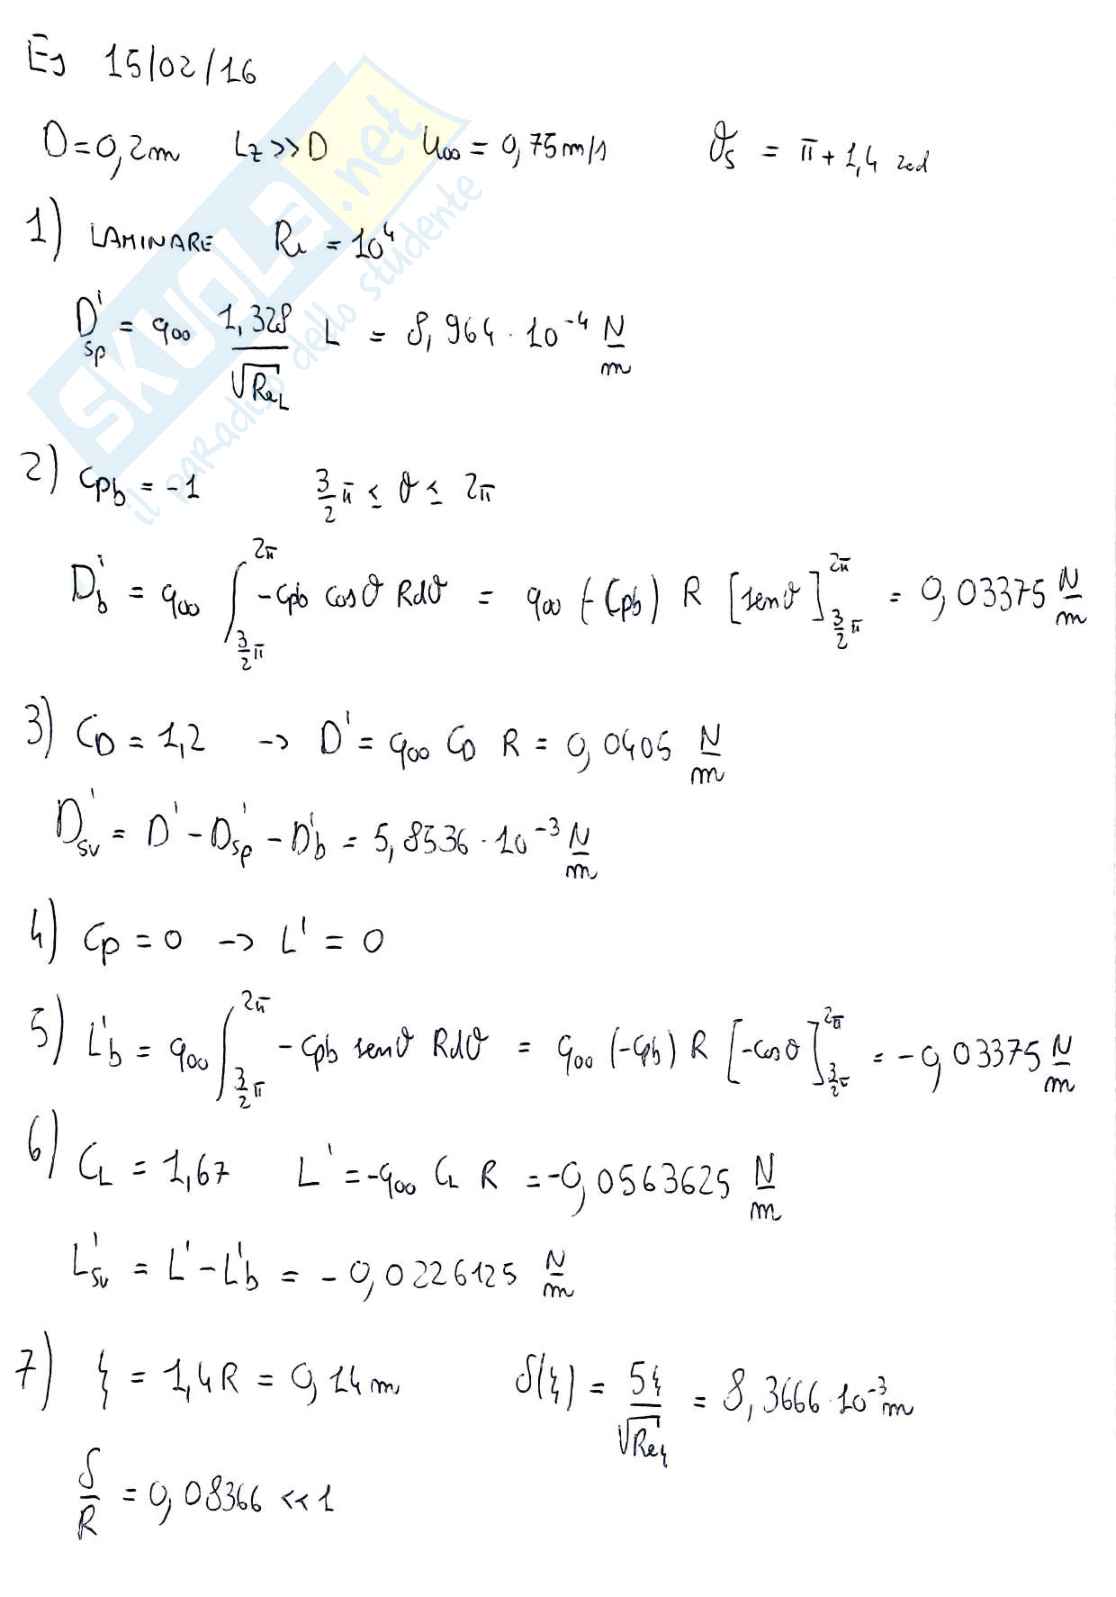 Es 15/02/16
D = 0,2 m   Lz >> D   U∞ = 0,75 m/s   ϑs = π + 1,4 rad
1) LAMINARE   Re = 10^4
D'sp = q∞ 1,328/√ReL L = 8,964 · 10^-4 N/m
2) Cpb = -1   3/2 π ≤ ϑ ≤ 2π
D'b = q∞ ∫_{3/2 π}^{2π} -Cpb cosϑ Rdϑ = q∞ (-Cpb) R [senϑ]_{3/2 π}^{2π} = 0,03375 N/m
3) CD = 1,2 -> D' = q∞ CD R = 0,0405 N/m
D'sv = D' - D'sp - D'b = 5,8536 · 10^-3 N/m
4) Cp = 0 -> L' = 0
5) L'b = q∞ ∫_{3/2 π}^{2π} - Cpb senϑ Rdϑ = q∞ (-Cpb) R [-cosϑ]_{3/2 π}^{2π} = -0,03375 N/m
6) CL = 1,67   L' = -q∞ CL R = -0,0563625 N/m
L'sv = L' - L'b = - 0,0226125 N/m
7) ξ = 1,4 R = 0,14 m   δ(ξ) = 5ξ/√Reξ = 8,3666 · 10^-3 m
δ/R = 0,08366 << 1
SKUOLA.net
il paradiso dello studente